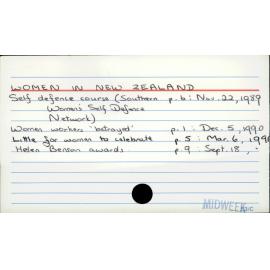 WOMEN IN NEW ZEALAND
Self defence course (Southern p. 6 : Nov. 22, 1989
Women's Self Defence
Network)
Women workers 'betrayed' p. 1 : Dec. 5, 1990
Little for women to celebrate p. 5 : Mar. 6, 199
Helen Benson awards p. 9 : Sept. 18,
MIDWEEK